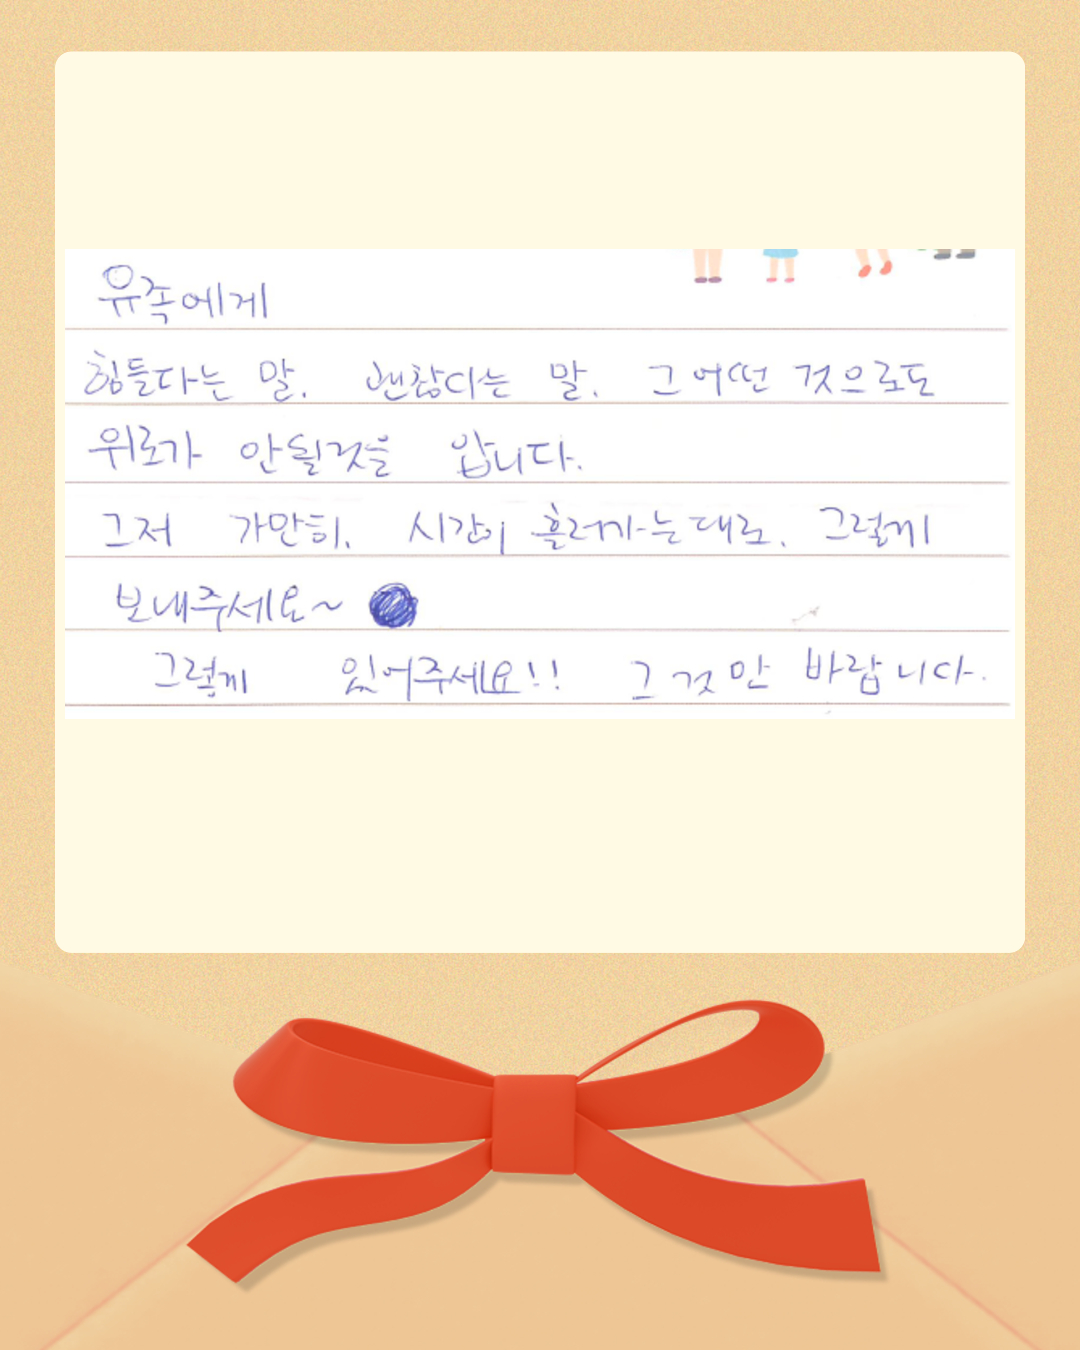 유족에게
힘들다는 말. 괜찮다는 말. 그 어떤 것으로도
위로가 안될것을 압니다.
그저 가만히. 시간이 흘러가는대로. 그렇게
보내주세요~
그렇게 있어주세요!! 그것만 바랍니다.